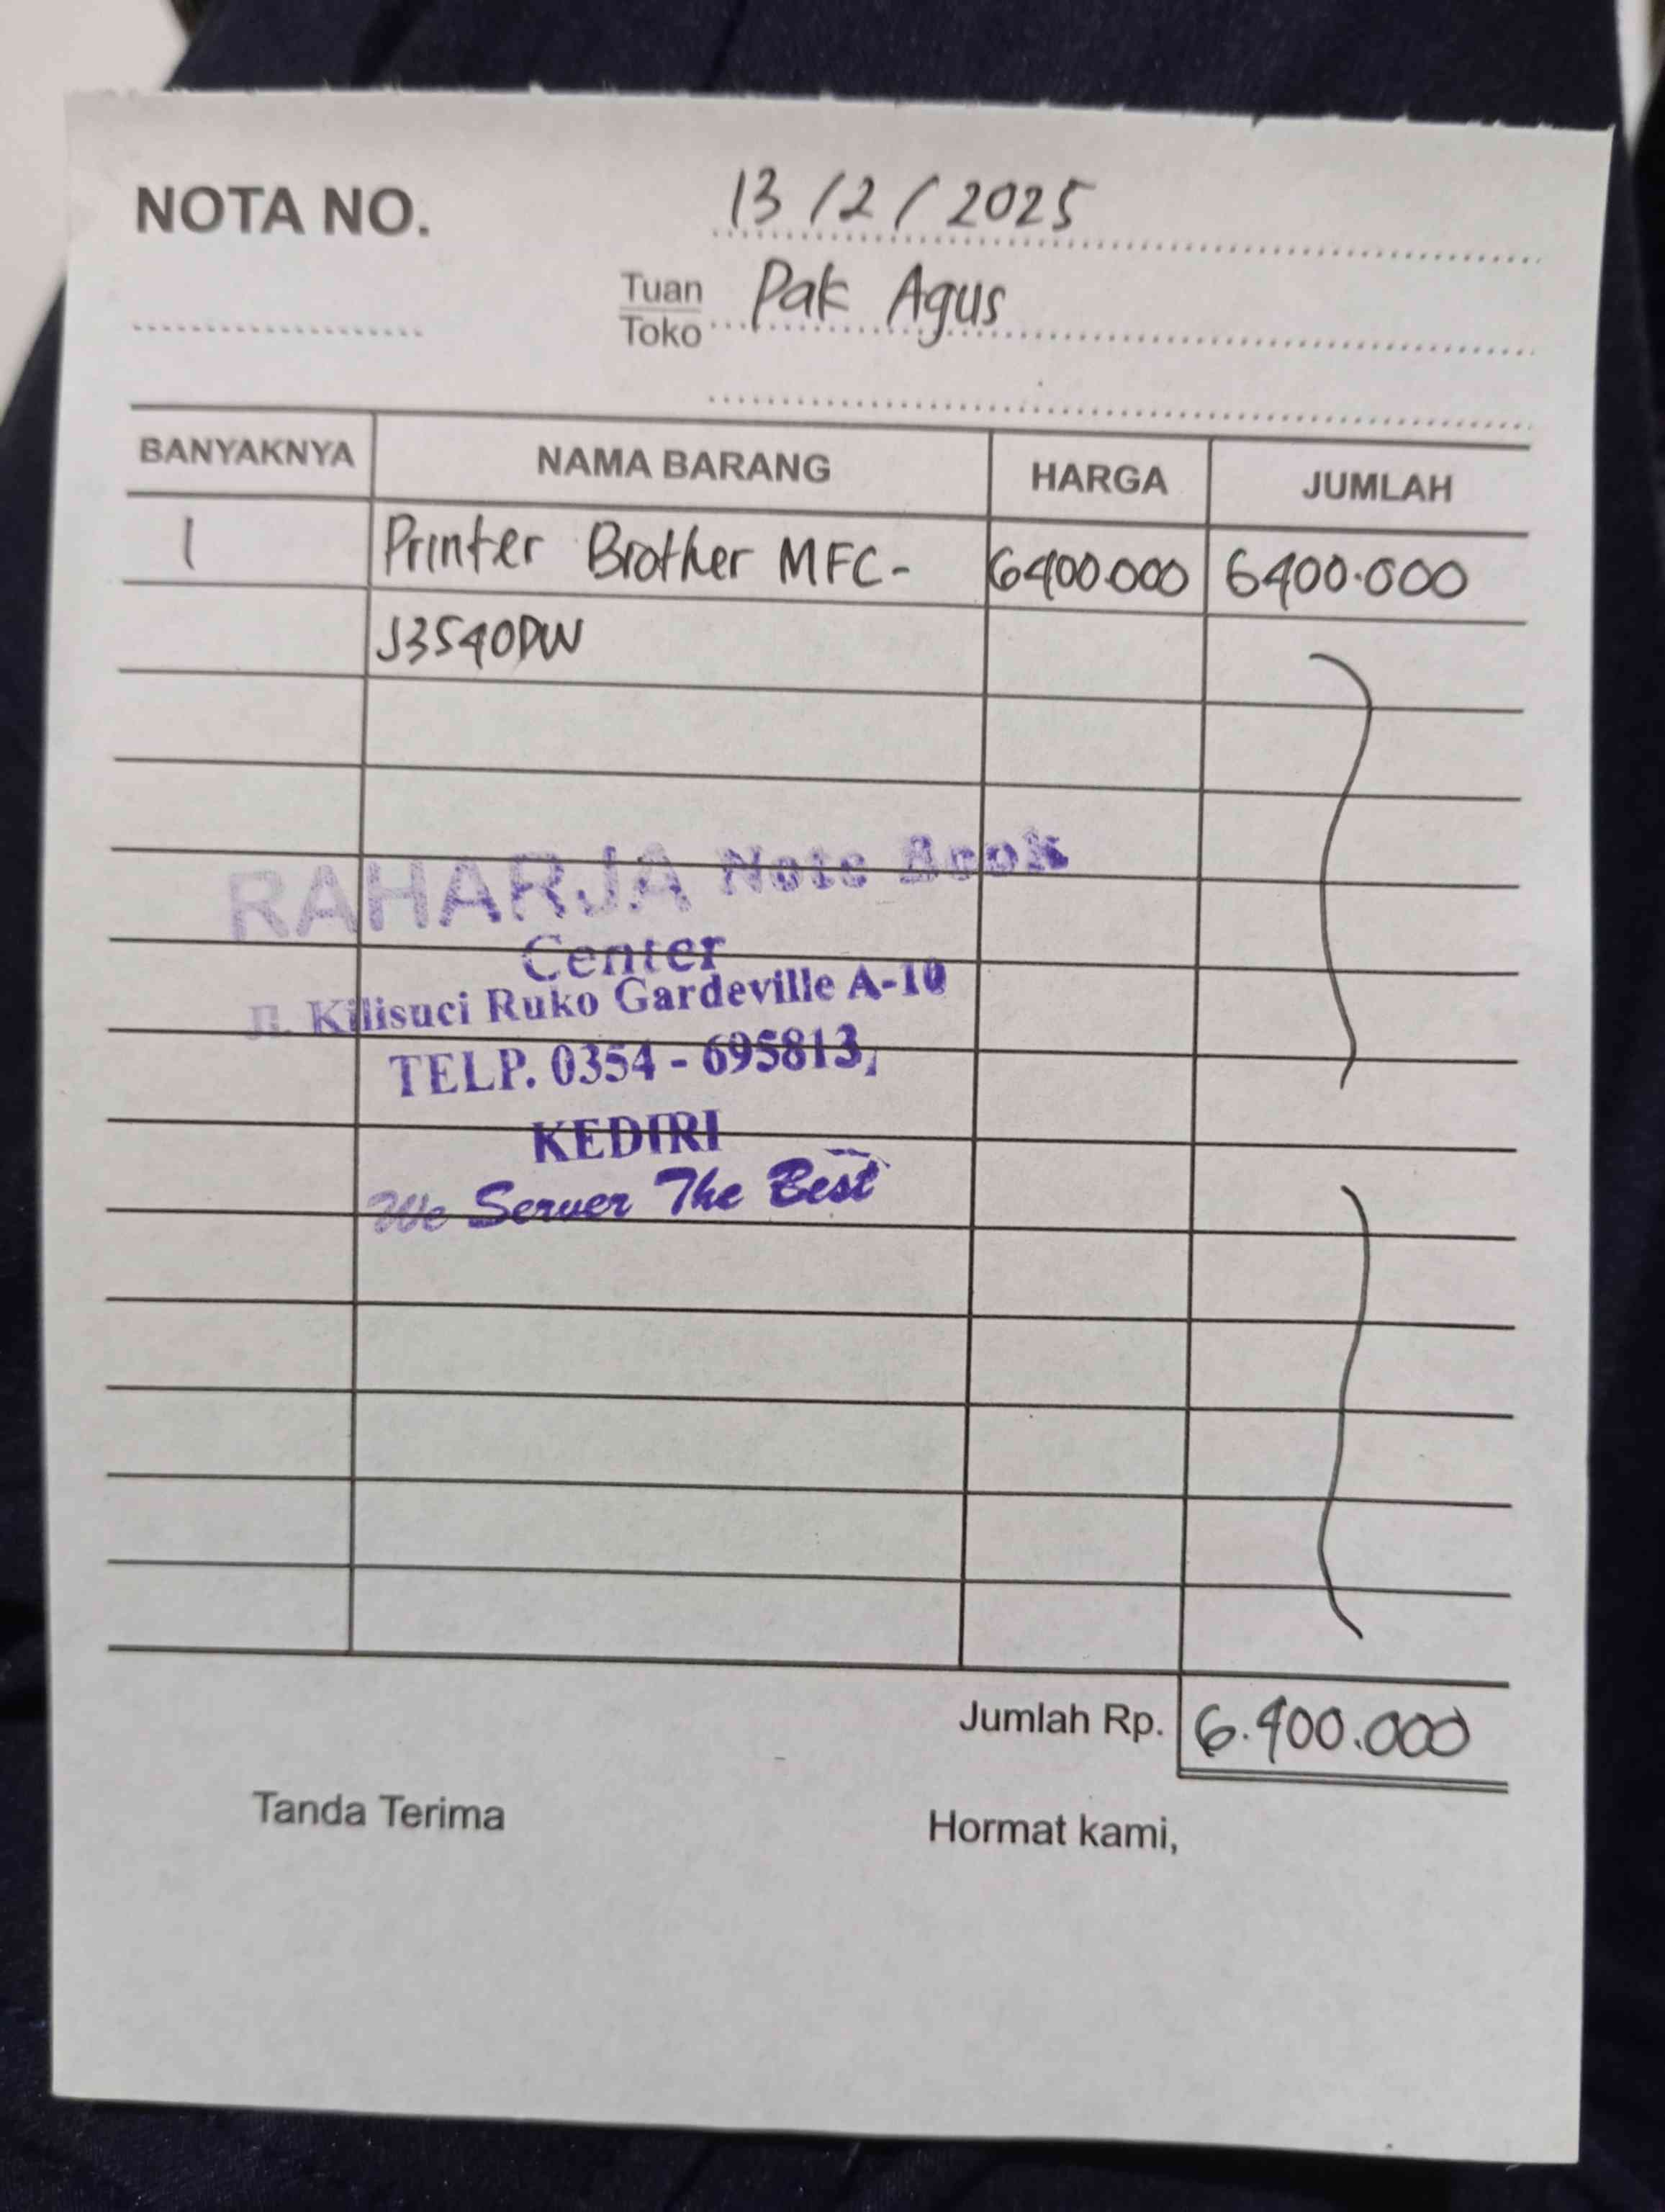 NOTA NO.
13/2/2025
Tuan
Toko
Pak Agus
BANYAKNYA NAMA BARANG HARGA JUMLAH
1 Printer Brother MFC- 6400.000 6400.000
J3540DW
RAHARJA Note Book
Center
Jl. Kilisuci Ruko Gardeville A-10
TELP. 0354 - 695813,
KEDIRI
We Server The Best
Jumlah Rp. 6.400.000
Tanda Terima Hormat kami,